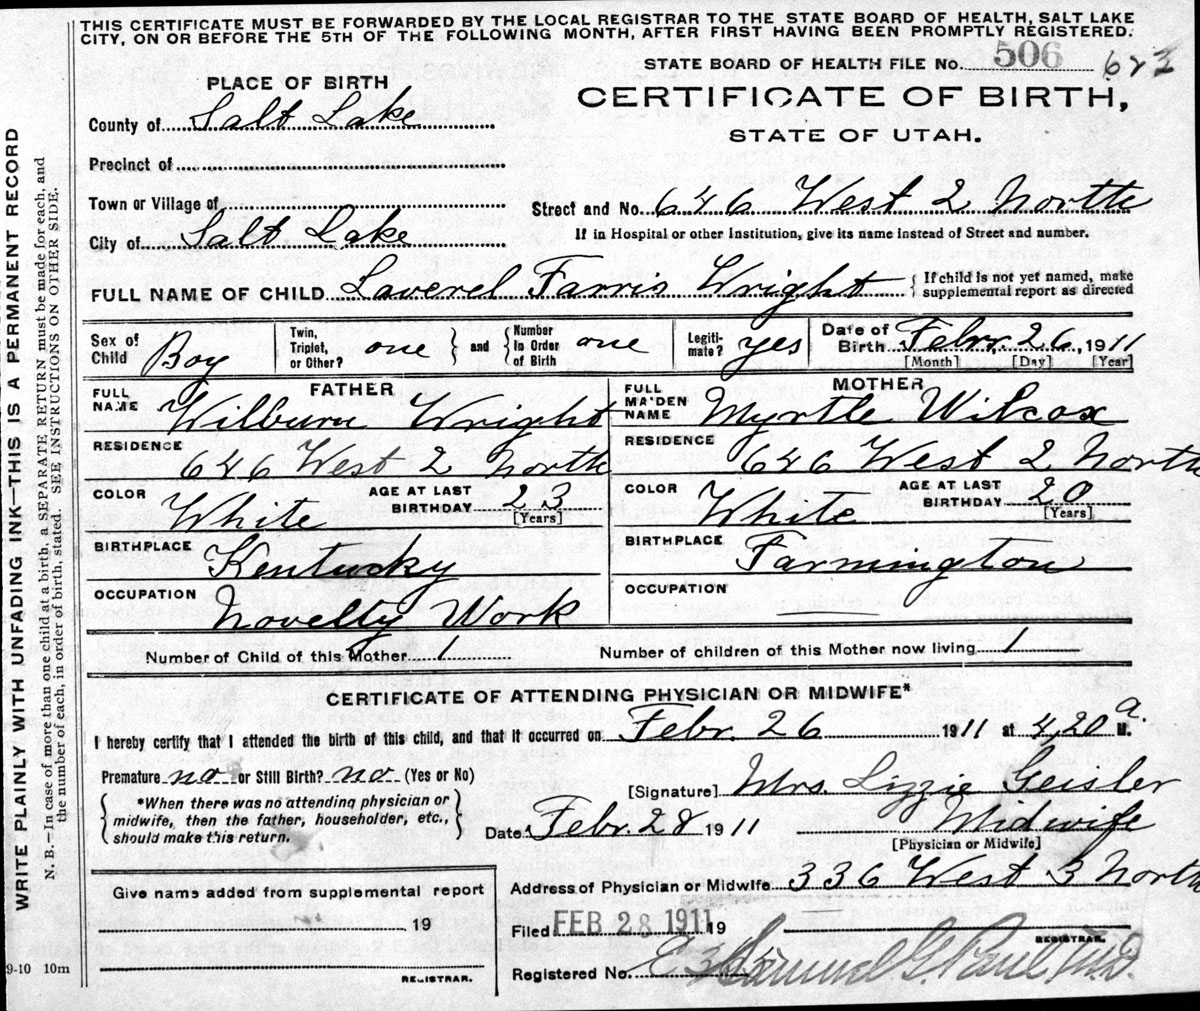 THIS CERTIFICATE MUST BE FORWARDED BY THE LOCAL REGISTRAR TO THE STATE BOARD OF HEALTH, SALT LAKE
CITY, ON OR BEFORE THE 5TH OF THE FOLLOWING MONTH, AFTER FIRST HAVING BEEN PROMPTLY REGISTERED.
STATE BOARD OF HEALTH FILE NO. 506 623
PLACE OF BIRTH
CERTIFICATE OF BIRTH,
STATE OF UTAH.
County of Salt Lake
Precinct of
Town or Village of
Street and No. 646 West 2 North
City of Salt Lake
If in Hospital or other Institution, give its name instead of Street and number.
FULL NAME OF CHILD Laverel Farris Wright { If child is not yet named, make
supplemental report as directed
Sex of Child Boy
Twin, Triplet, or Other? one } and { Number In Order of Birth one
Legitimate? yes
Date of Birth Febr. 26, 1911
[Month] [Day] [Year]
FATHER
FULL NAME Wilburn Wright
MOTHER
FULL MA'DEN NAME Myrtle Wilcox
RESIDENCE 646 West 2 North
RESIDENCE 646 West 2 North
COLOR White AGE AT LAST BIRTHDAY 23 [Years]
COLOR White AGE AT LAST BIRTHDAY 20 [Years]
BIRTHPLACE Kentucky
BIRTHPLACE Farmington
OCCUPATION Novelty Work
OCCUPATION —
Number of Child of this Mother 1
Number of children of this Mother now living 1
CERTIFICATE OF ATTENDING PHYSICIAN OR MIDWIFE*
I hereby certify that I attended the birth of this child, and that it occurred on Febr. 26 1911 at 4,20 a. M.
Premature no or Still Birth? no (Yes or No)
{ *When there was no attending physician or
midwife, then the father, householder, etc.,
should make this return. }
[Signature] Mrs. Lizzie Geisler
Date: Febr. 28 1911 Midwife
[Physician or Midwife]
Give name added from supplemental report
19
REGISTRAR.
Address of Physician or Midwife 336 West 3 North
Filed FEB 28 1911 19
REGISTRAR.
Registered No.
Samuel G. Paul M.D.
9-10 10m
WRITE PLAINLY WITH UNFADING INK—THIS IS A PERMANENT RECORD
N. B.—In case of more than one child at a birth, a SEPARATE RETURN must be made for each, and
the number of each, in order of birth, stated. SEE INSTRUCTIONS ON OTHER SIDE.